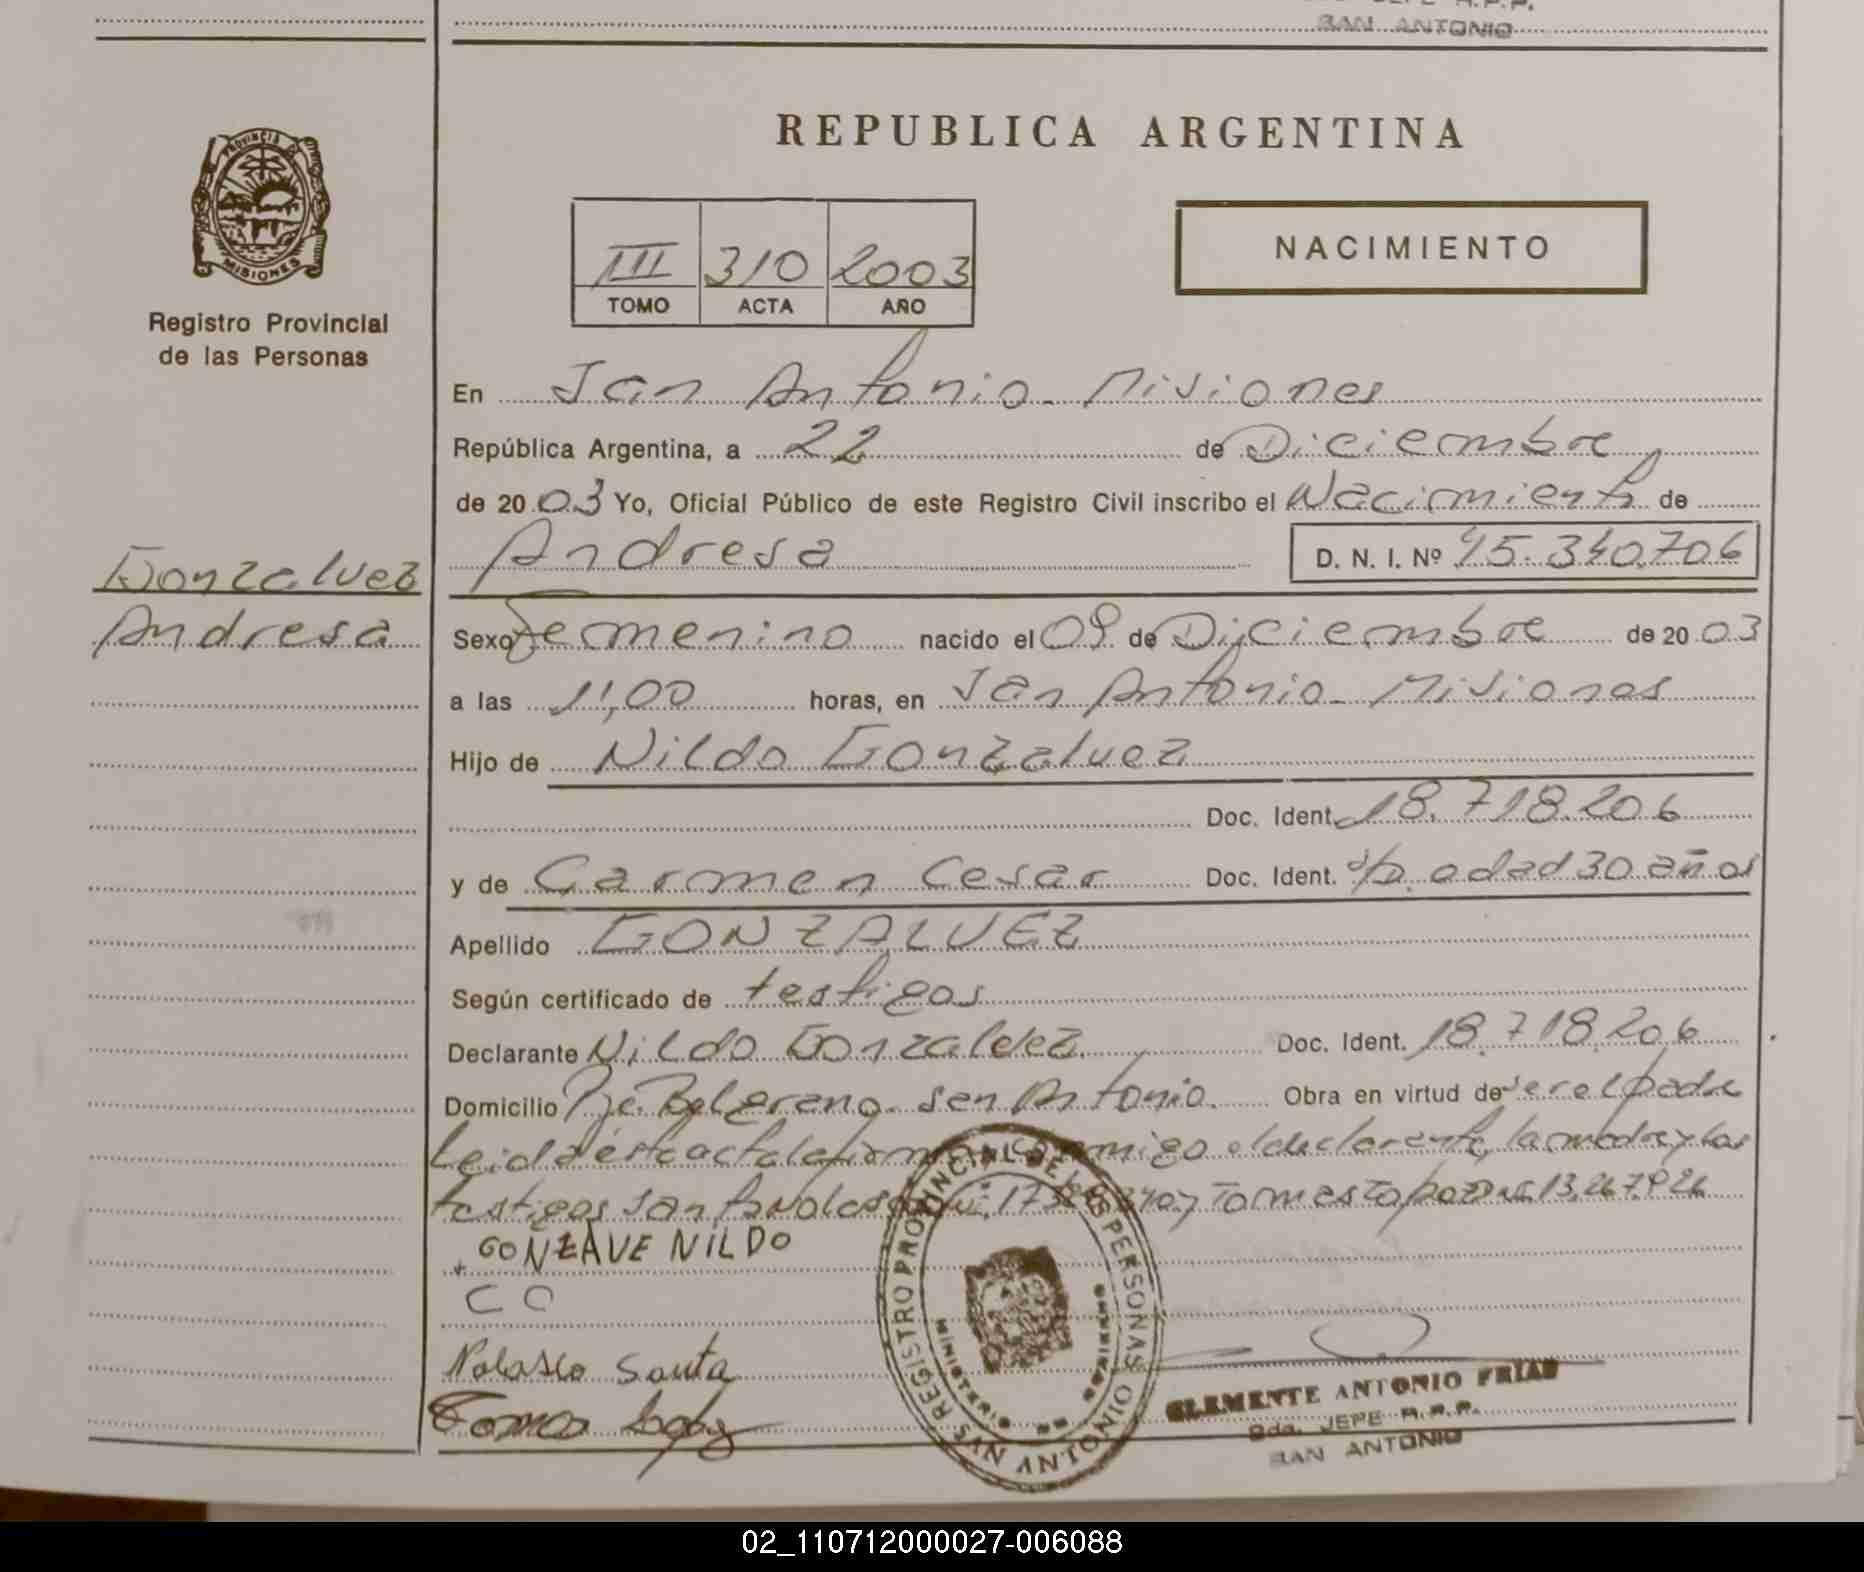 SAN ANTONIO
PROVINCIA DE
MISIONES
Registro Provincial
de las Personas
REPUBLICA ARGENTINA
III 310 2003
TOMO ACTA AÑO
NACIMIENTO
En San Antonio - Misiones
República Argentina, a 22 de Diciembre
de 2003 Yo, Oficial Público de este Registro Civil inscribo el Nacimiento de
Andresa D. N. I. Nº 45.340.706
Gonzalvez
Andresa
Sexo Femenino nacido el 09 de Diciembre de 2003
a las 11,00 horas, en San Antonio - Misiones
Hijo de Nildo Gonzalvez
Doc. Ident. 18.718.206
y de Carmen Cesar Doc. Ident. s/D. edad 30 años
Apellido GONZALVEZ
Según certificado de testigos
Declarante Nildo Gonzalvez Doc. Ident. 18.718.206
Domicilio Pje. Belgrano - San Antonio. Obra en virtud de ser el padre
Leida ésta acta la firman conmigo el declarante, la madre y los
testigos
GONZAVE NILDO
C C
Nolasco Santa
REGISTRO PROVINCIAL DE LAS PERSONAS
MINISTERIO DE GOBIERNO
SAN ANTONIO
CLEMENTE ANTONIO FRIAS
JEFE R.P.P.
SAN ANTONIO
02_110712000027-006088